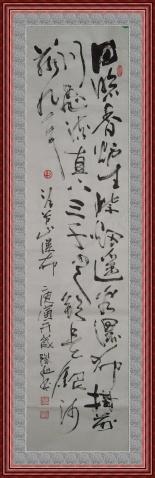 日照香炉生紫烟遥看瀑布挂前
川飞流直下三千尺疑是银河
落九天
庐山瀑布